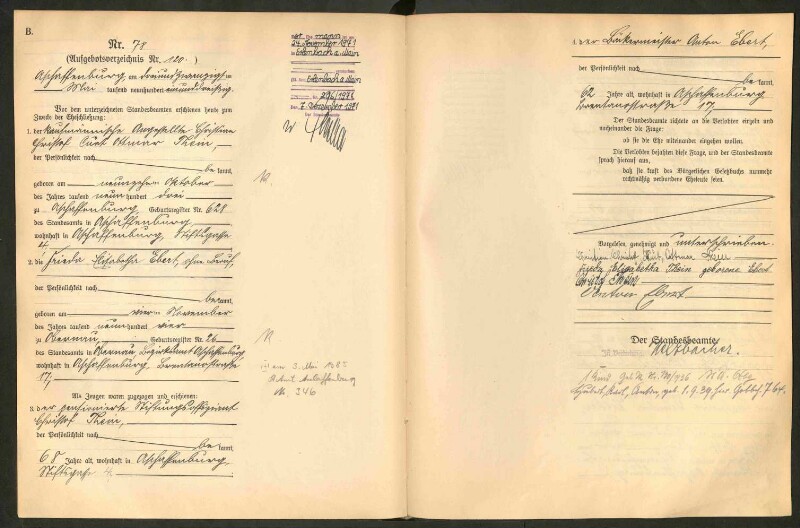 B.
Nr. 78
(Aufgebotsverzeichnis Nr. 120.)
Aschaffenburg, am dreiundzwanzigsten
Mai tausend neunhundert einunddreißig.
Vor dem unterzeichneten Standesbeamten erschienen heute zum
Zwecke der Eheschließung:
1. der kaufmännische Angestellte Christian
Christof Curt Ottmar Thein,
der Persönlichkeit nach
be kannt,
geboren am neunzehn Oktober
des Jahres tausend neun hundert drei
zu Aschaffenburg, Geburtsregister Nr. 628
des Standesamts in Aschaffenburg,
wohnhaft in Aschaffenburg, Stiftsgasse
4.
2. die Frieda Elisabetha Ebert, ohne Beruf,
der Persönlichkeit nach
be kannt,
geboren am vier November
des Jahres tausend neun hundert vier
zu Obernau, Geburtsregister Nr. 26
des Standesamts in Obernau, Bezirksamt Aschaffenburg
wohnhaft in Aschaffenburg, Brentanostraße
17,
Als Zeugen waren zugezogen und erschienen:
3. der pensionierte Stiftungsoffiziant
Christof Thein,
der Persönlichkeit nach
be kannt,
68 Jahre alt, wohnhaft in Aschaffenburg,
Stiftsgasse 4.
24. November 1971
Erlenbach a. Main
Erlenbach a. Main
296/1971
7. Dezember 1971
am 3. Mai
Nr. 346
4. der Bäckermeister Anton Ebert,
der Persönlichkeit nach
be kannt,
62 Jahre alt, wohnhaft in Aschaffenburg,
Brentanostraße 17,
Der Standesbeamte richtete an die Verlobten einzeln und
nacheinander die Frage:
ob sie die Ehe miteinander eingehen wollen.
Die Verlobten bejahten diese Frage, und der Standesbeamte
sprach hierauf aus,
daß sie kraft des Bürgerlichen Gesetzbuchs nunmehr
rechtmäßig verbundene Eheleute seien.
Vorgelesen, genehmigt und unterschrieben.
Christian Christof Curt Ottmar Thein
Frieda Elisabetha Thein geborene Ebert
Christof Thein
Anton Ebert
Der Standesbeamte